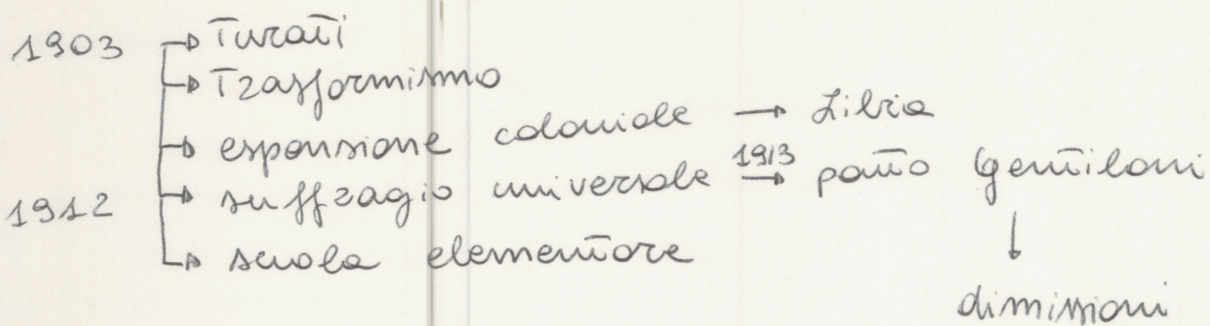 1903 → Turati
→ Trasformismo
→ espansione coloniale → Libia
1912 → suffragio universale 1913 → patto Gentiloni
→ scuola elementare ↓
dimissioni